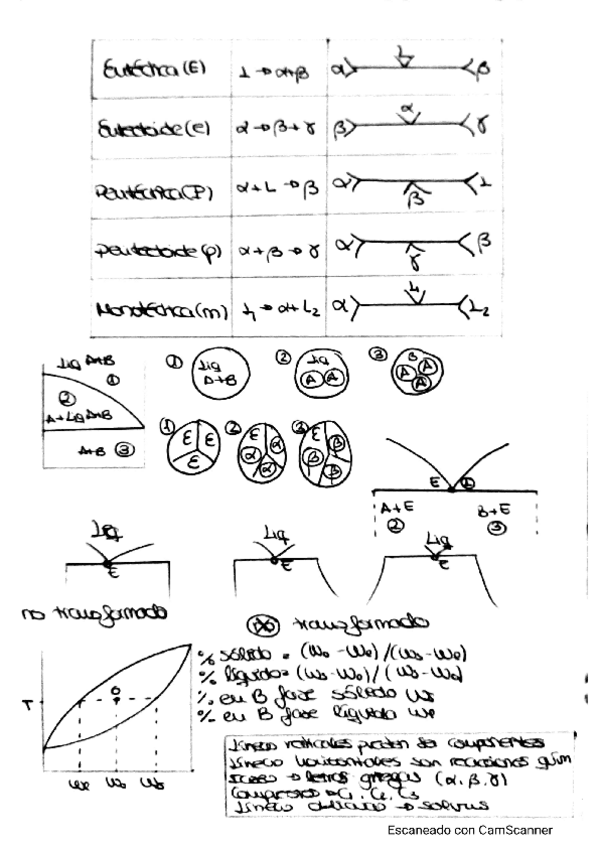 Eutéctica (E) L → α+β α L β
Eutectoide (e) α → β+γ β α γ
Peritéctica (P) α+L → β α β L
Peritectoide (p) α+β → γ α γ β
Monotéctica (m) L₁ → α+L₂ α L₁ L₂
Liq A+B
①
②
A+Liq A+B
A+B ③
① Liq A+B ② Liq A A ③ B A A A
① E E E ② E α α ③ E β β β
E ①
A+E B+E
② ③
Liq Liq Liq
E E E
no transformado
transformado
% sólido = (w₀ - wₗ) / (wₛ - wₗ)
% líquido = (wₛ - w₀) / (wₛ - wₗ)
% en B fase sólido wₛ
% en B fase líquida wₗ
T O
wₗ w₀ wₛ
líneas verticales pueden ser componentes
líneas horizontales son reacciones quím
→ letras griegas (α, β, γ)
compuestos → C₁, C₂, C₃
línea → solvus
Escaneado con CamScanner